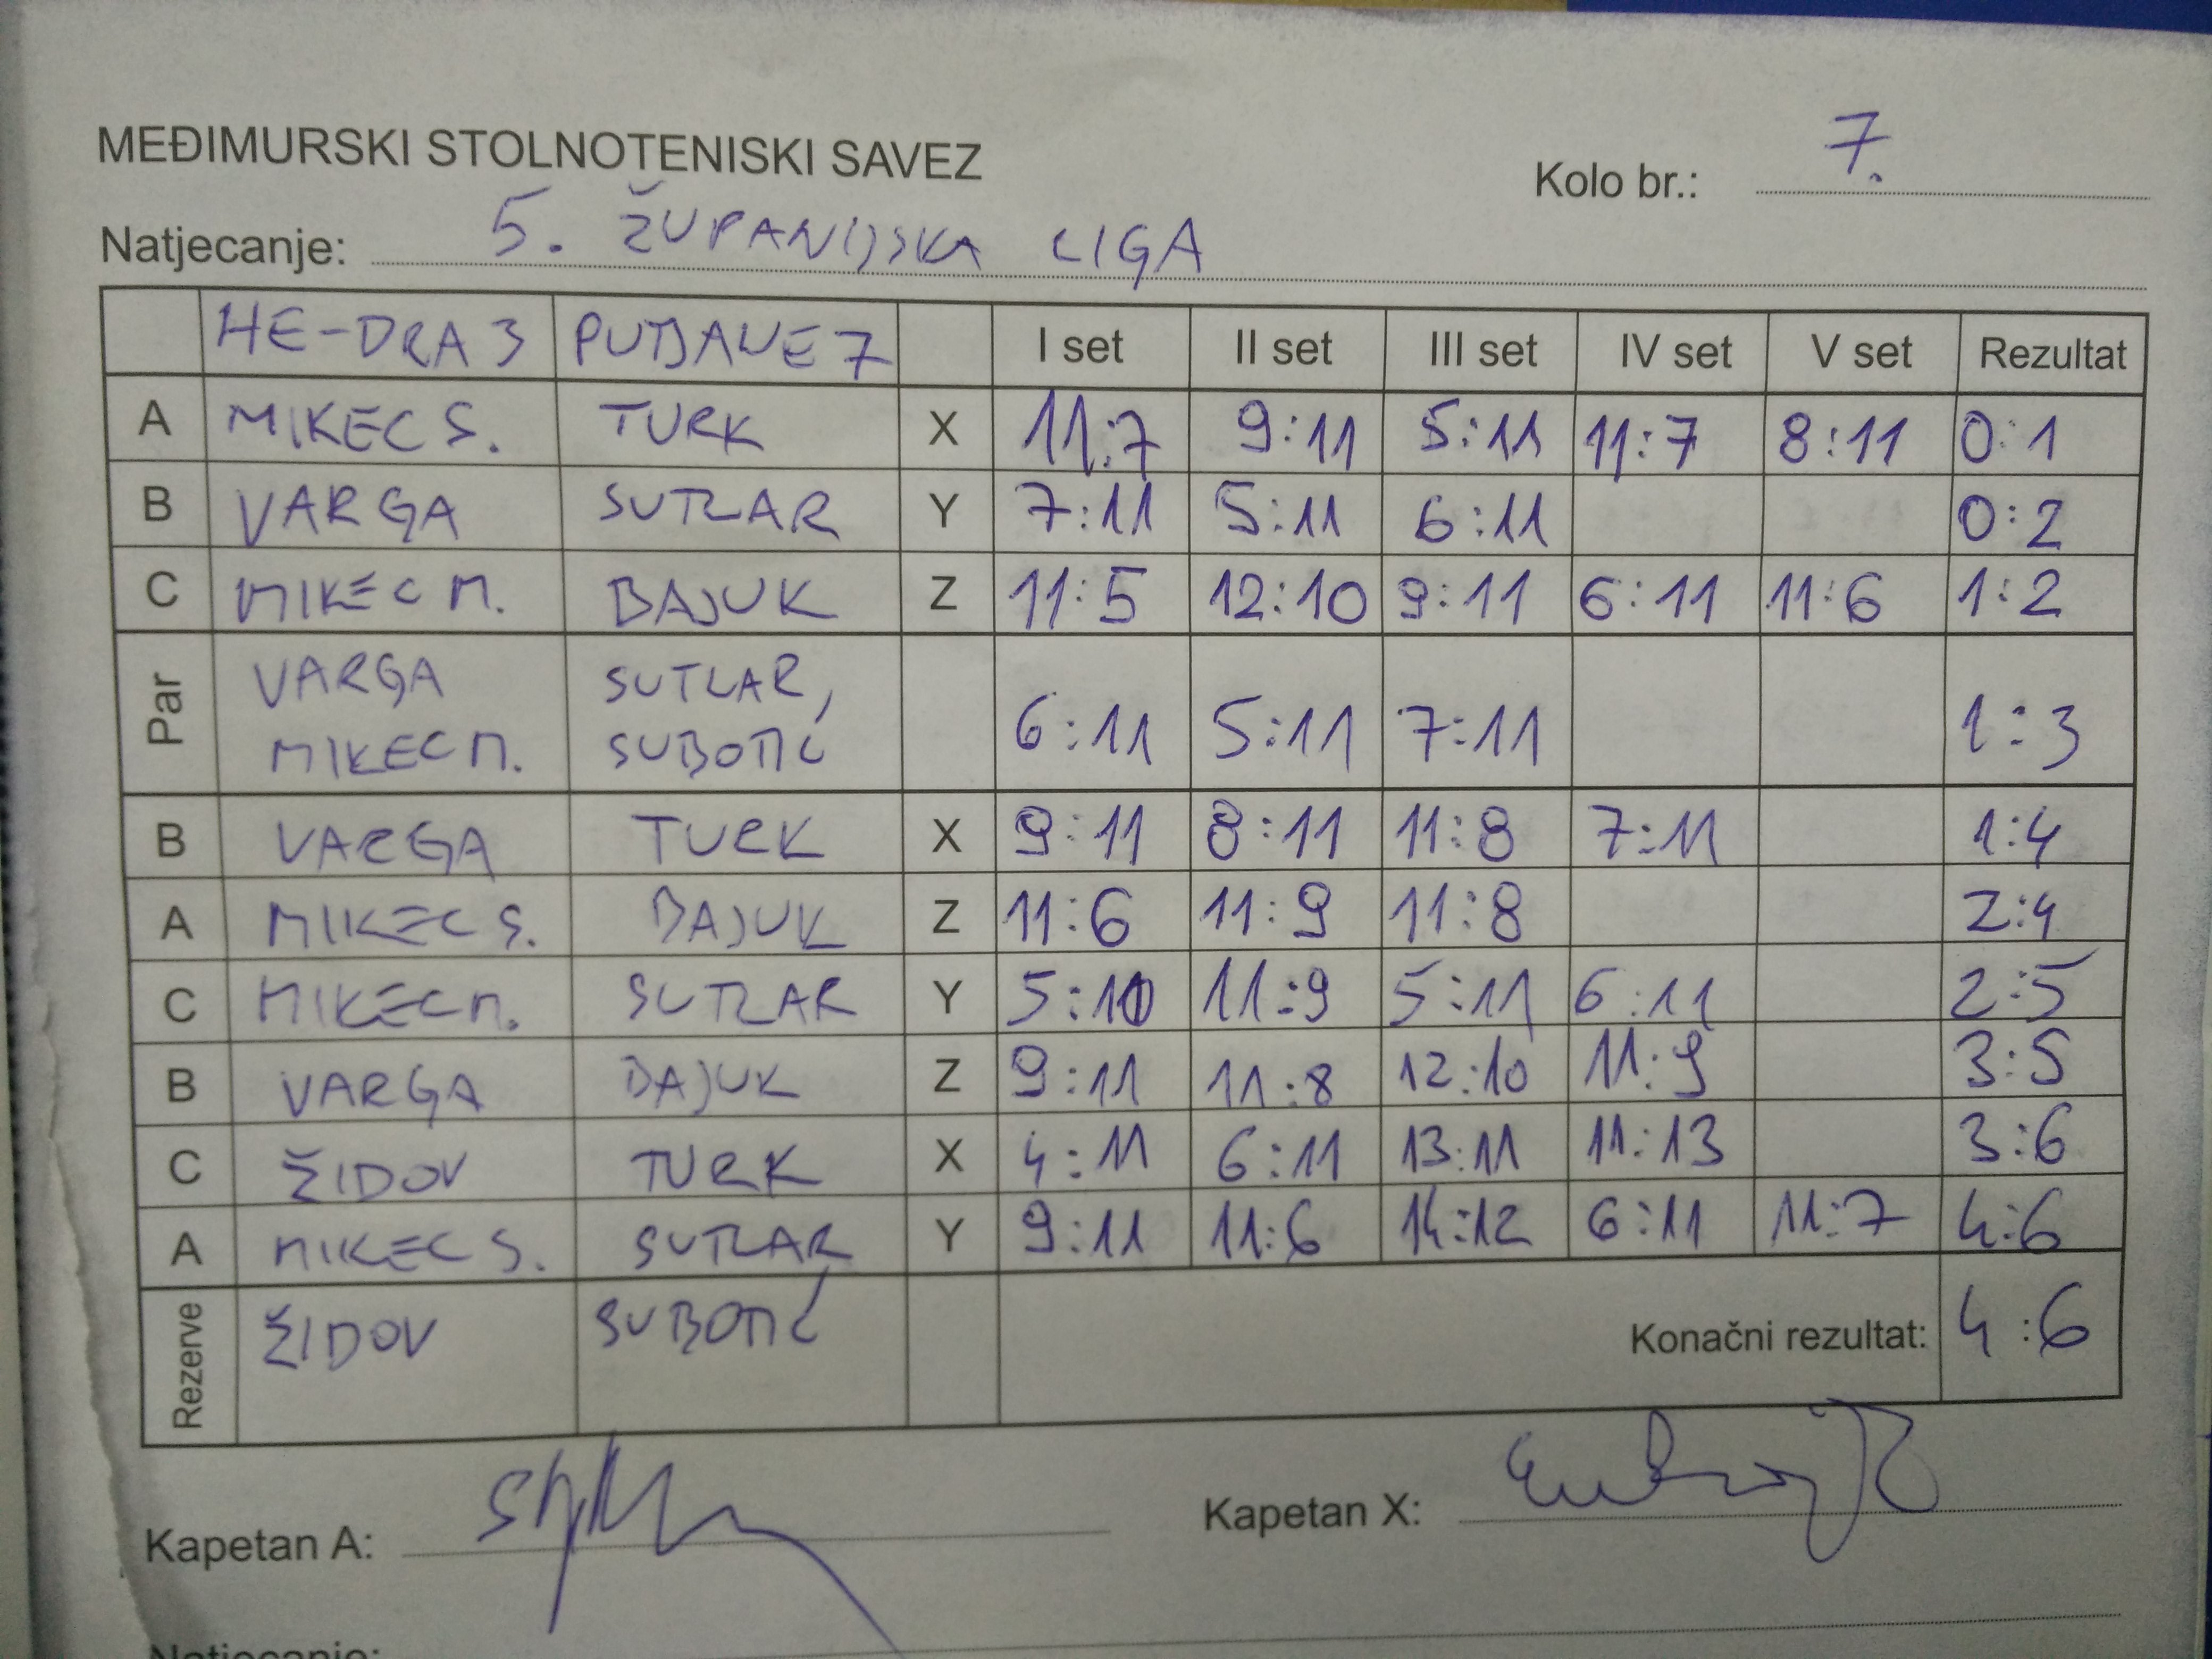 MEĐIMURSKI STOLNOTENISKI SAVEZ
Kolo br.: 7.
Natjecanje: 5. ŽUPANIJSKA LIGA
HE-DRA 3 PUTJANE 7 I set II set III set IV set V set Rezultat
A MIKEC S. TURK X 11:7 9:11 5:11 11:7 8:11 0:1
B VARGA SUTLAR Y 7:11 5:11 6:11 0:2
C MIKEC M. BAJUK Z 11:5 12:10 9:11 6:11 11:6 1:2
Par VARGA MIKEC M. SUTLAR, SUBOTIĆ 6:11 5:11 7:11 1:3
B VARGA TURK X 9:11 8:11 11:8 7:11 1:4
A MIKEC S. BAJUK Z 11:6 11:9 11:8 2:4
C MIKEC M. SUTLAR Y 5:11 11:9 5:11 6:11 2:5
B VARGA BAJUK Z 9:11 11:8 12:10 11:9 3:5
C ŽIDOV TURK X 4:11 6:11 13:11 11:13 3:6
A MIKEC S. SUTLAR Y 9:11 11:6 14:12 6:11 11:7 4:6
Rezerve ŽIDOV SUBOTIĆ Konačni rezultat: 4:6
Kapetan A: Kapetan X:
Natjecanje: